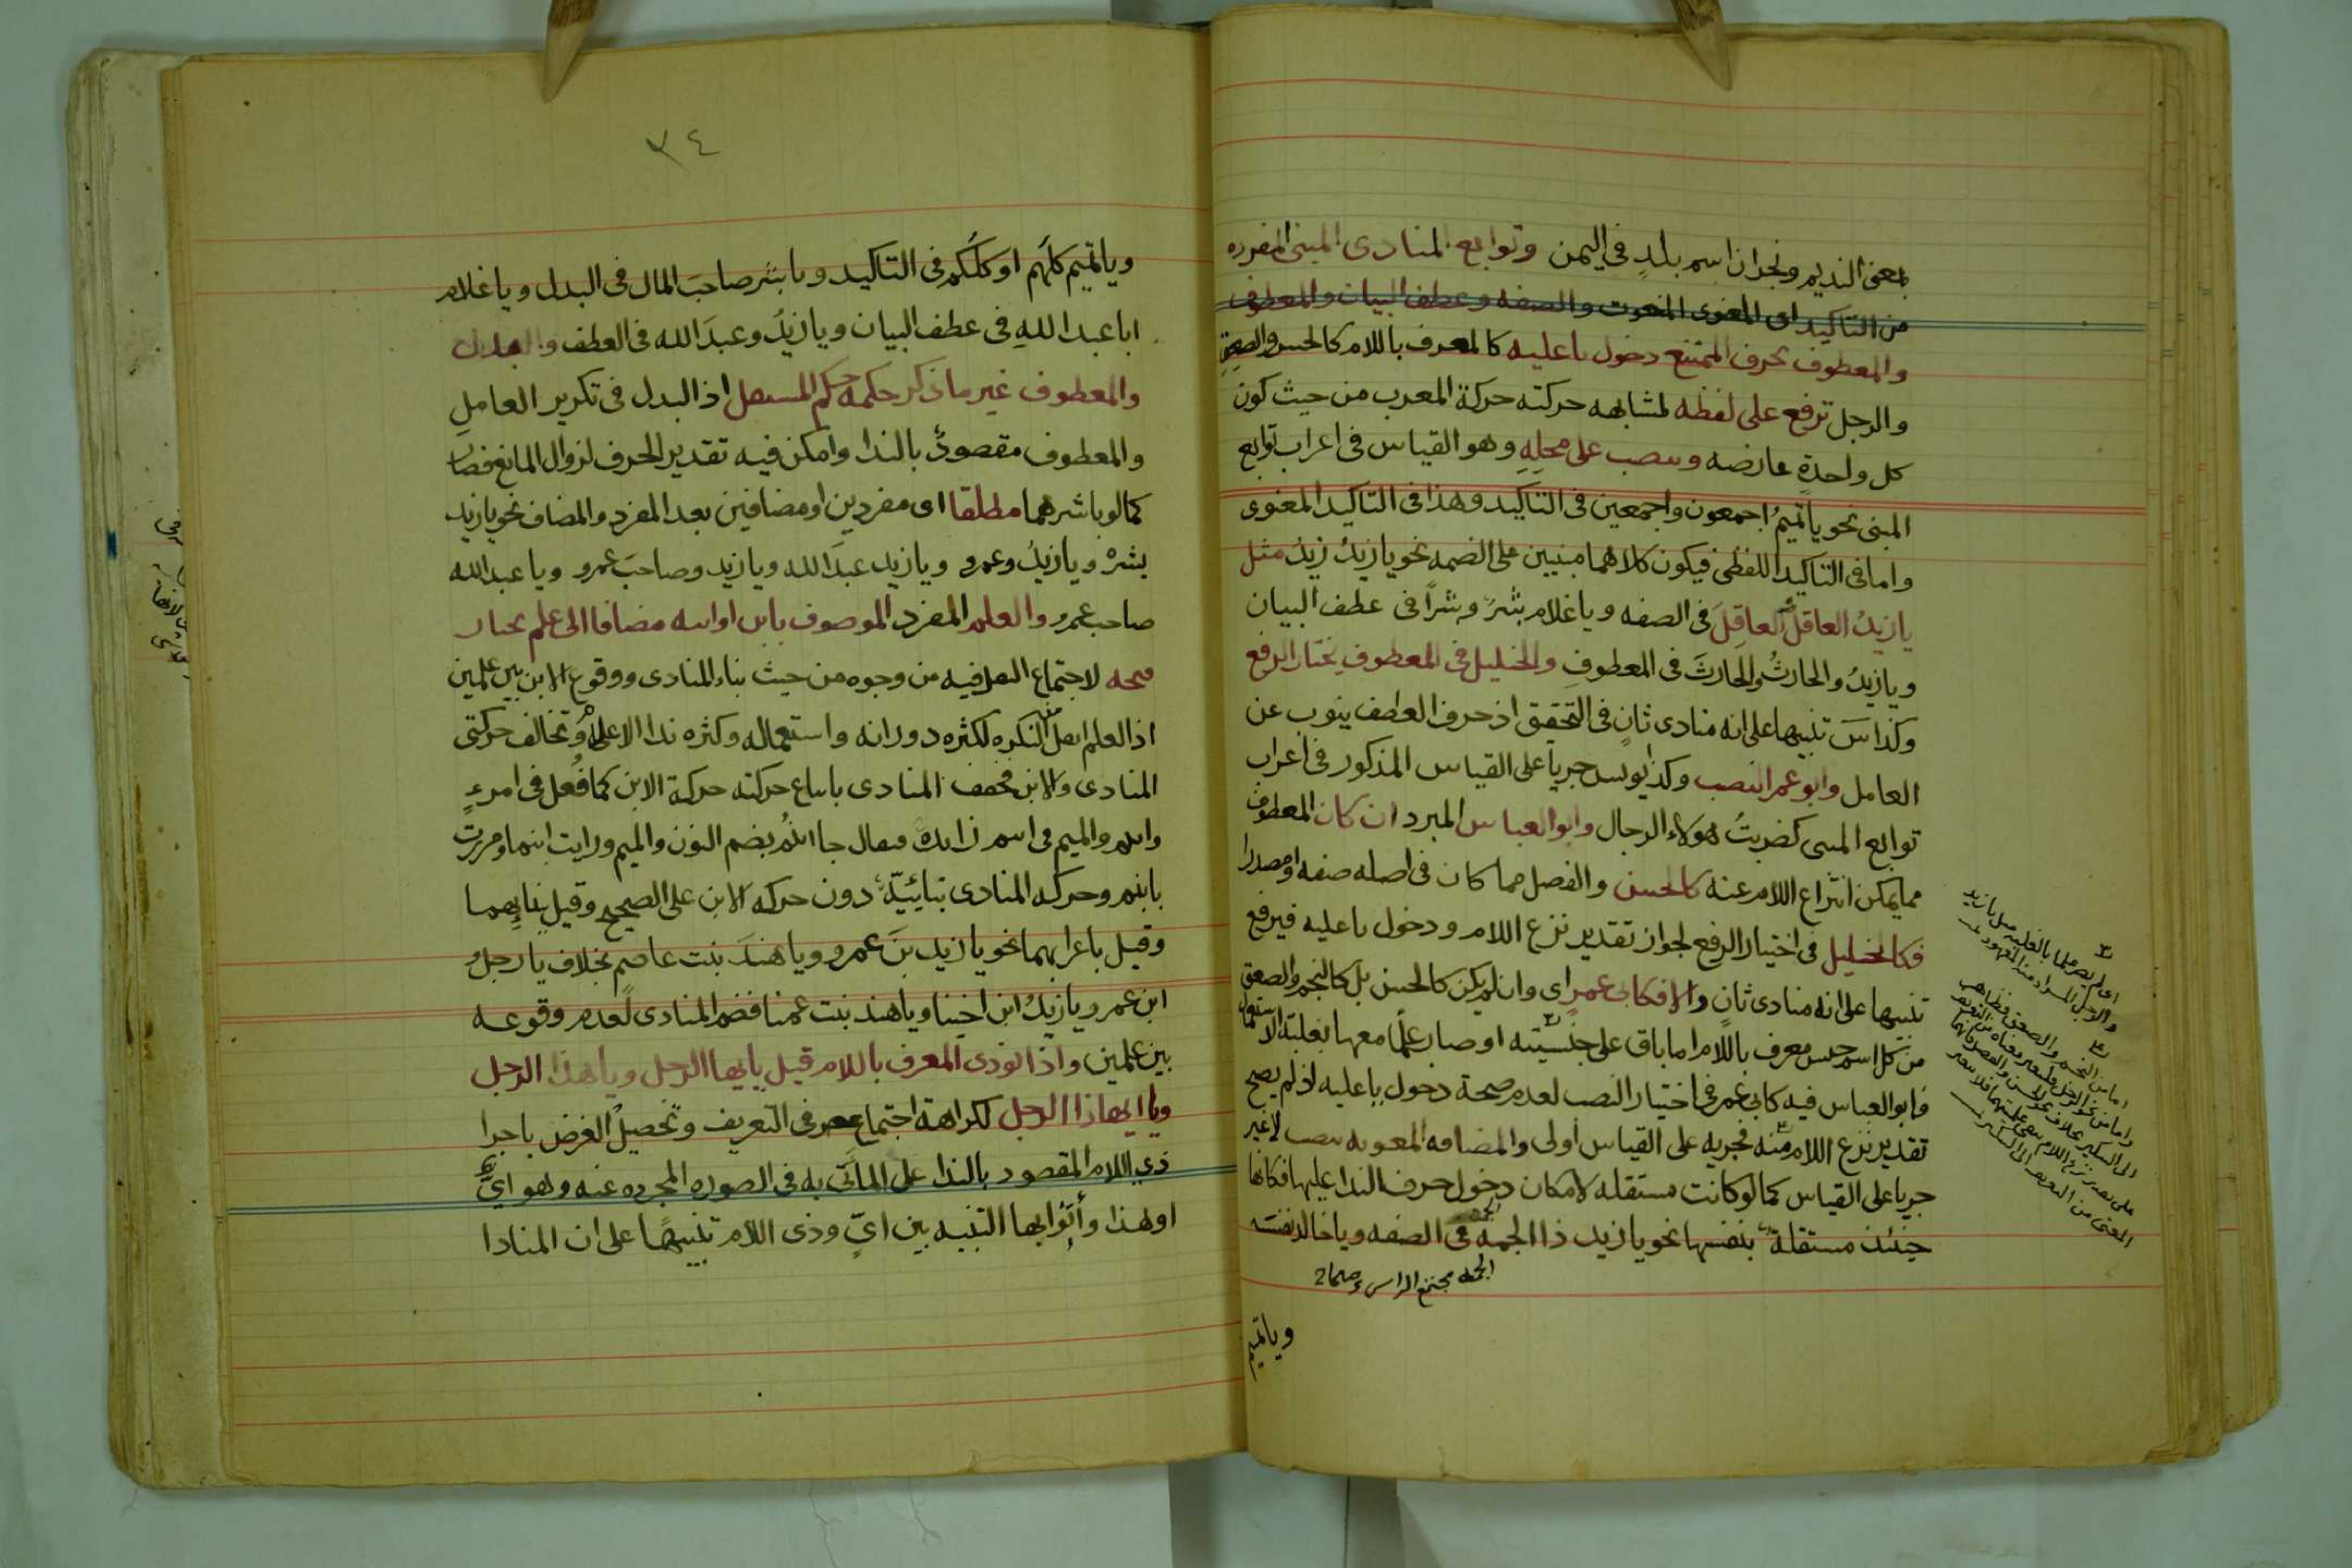 بمعنى النديم ونجران اسم بلدٍ فى اليمن وتوابع المنادى المبنى المفرده
من التاكيد اى المعنوى المنعوت والصفه وعطف البيان والمعطوف
والمعطوف بحرف الممتنع دخول يا عليه كالمعرف باللام كالحسن والصعق
والرجل ترفع على لفظه لمشابهه حركته حركة المعرب من حيث كون
كل واحدةٍ عارضه وىىصب على محلهِ وهو القياس فى اعراب توابع
المبنى نحو يا تميمُ اجمعون واجمعين فى التاكيد وهذا فى التاكيد المعنوى
واما فى التاكيد اللفظى فيكون كلاهما مبنيين على الضمه نحو يا زيدُ زيدُ مثل
يا زيدُ العاقلُ والعاقِلَ فى الصفه ويا غلام بشرٌ وبشراً فى عطف البيان
ويا زيدُ والحارثُ والحارثَ فى المعطوفِ والخليل فى المعطوفِ يختار الرفع
وكذا سَ تنبيها على انه منادى ثانٍ فى التحقيق اذ حرف العطف ينوب عن
العامل وابو عمر النصب وكذا يونس جرياً على القياس المذكور فى اعراب
توابع المبنى كضربتُ هولاء الرجال وابو العباس المبرد ان كان المعطوف
مما يمكن انتزاع اللام عنه كالحسن والفصل مما كان فى اصله صفه او مصدرا
فكالخليل فى اختيار الرفع لجواز تقدير نزع اللام ودخول يا عليه فيرفع
تنبيها على انه منادى ثانٍ والا فكابى عمرٍ اى وان لم يكن كالحسن بل كالنجم والصعق
من كل اسم جنس معرف باللام اما باق على جنسيته او صار علمًا معها بغلبته الاستعمال
فابو العباس فيه كابى عمر فى اختيار النصب لعدم صحة دخول يا عليه اذ لم يصح
تقدير نزع اللام منه فجريه على القياس أولى والمضافه المعنويه تنصب لا غير
جريا على القياس كما لو كانت مستقله لامكان دخول حرف الندا عليها فكانها
حينئذ مستقلة بنفسها نحو يا زيد ذا الجمه فى الصفه ويا خالد نفسَه
الجمه مجتمع الراس
ويا تميم
٣٤
ويا تميم كلهم او كلكم فى التاكيد ويا بشر صاحبَ المال فى البدل ويا غلام
ابا عبد اللهِ فى عطف البيان ويا زيدُ وعبدَ الله فى العطف والبدل
والمعطوف غير ما ذكر حكمه حكم المستقل اذ البدل فى تكرير العاملِ
والمعطوف مقصودٌ بالندا وامكن فيه تقدير الحرف لزوال المانع فصارَ
كما لو باشرهما مطلقا اى مفردين او مضافين بعد المفرد والمضاف نحو يا زيد
بشرْ ويا زيدُ وعمرو ويا زيد عبدَ الله ويا زيد وصاحبَ عمرو ويا عبد الله
صاحب عمرو والعلم المفرد الموصوف بابن او ابنه مضافا الى علم يختار
فتحه لاجتماع الثقل فيه من وجوه من حيث بناء المنادى ووقوع الابن بين علمين
اذ العلم اثقل من النكره لكثره دورانه واستعماله وكثره ندا الاعلام وتخالف حركتى
المنادى والابن فخفف المنادى باتباع حركته حركة الابن كما فُعل فى امرءٍ
وابنم والميم فى اسم زايده فيقال جا ابنُمُ بضم النون والميم ورايت ابنما ومررت
بابنمِ وحركه المنادى بنائيّة دون حركه الابن على الصحيح وقيل بنايهما
وقيل باعرابهما نحو يا زيد بنَ عمرو ويا هندَ بنت عاصمٍ بخلاف يا رجل
ابن عمر ويا زيدُ ابن اخينا ويا هند بنت عمنا فضم المنادى لعدم وقوعه
بين علمين واذا نودى المعرف باللام قيل يا ايها الرجل ويا هذا الرجل
ويا ايهاذا الرجل لكراهة اجتماع حرفى التعريف وتحصيل الغرض باجرا
ذى اللام المقصود بالندا على الماتى به فى الصوره المجرده عنه وهو اىٌّ
او هذا وأتوا بها التنبيه بين اىٍّ وذى اللام تنبيهًا على ان المنادا